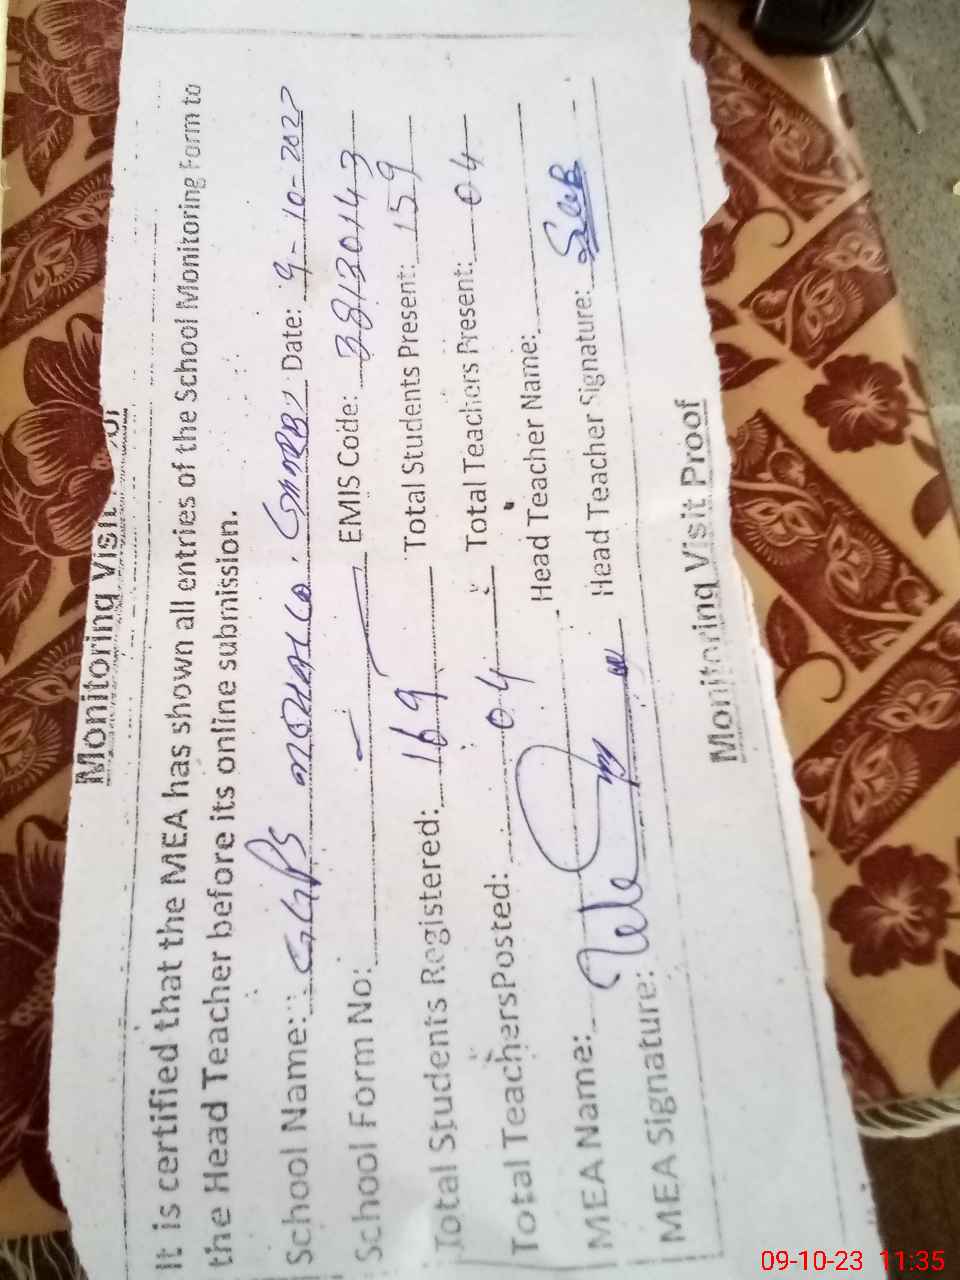 Monitoring Visit
It is certified that the MEA has shown all entries of the School Monitoring Form to
the Head Teacher before its online submission.
School Name: GGPS Date: 9-10-202
School Form No: — EMIS Code: 38130143
Total Students Registered: 169 Total Students Present: 159
Total TeachersPosted: 04 Total Teachers Present: 04
MEA Name: Head Teacher Name:
MEA Signature: Head Teacher Signature:
Monitoring Visit Proof
09-10-23 11:35